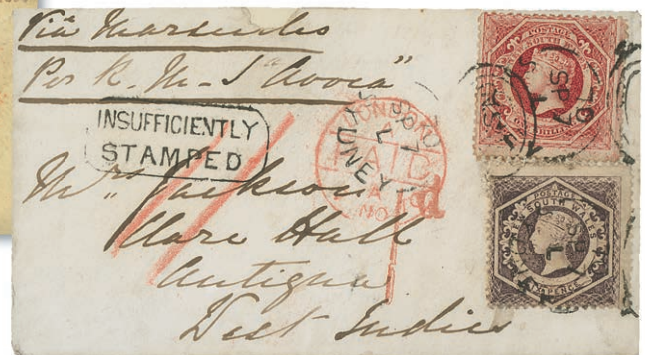 Via Marseilles
Per R. M. S "Avoca"
INSUFFICIENTLY
STAMPED
LONDON
PAID
SYDNEY
Mrs Jackson
Clare Hall
Antigua
West Indies
POSTAGE
NEW SOUTH WALES
POSTAGE
NEW SOUTH WALES
SIXPENCE